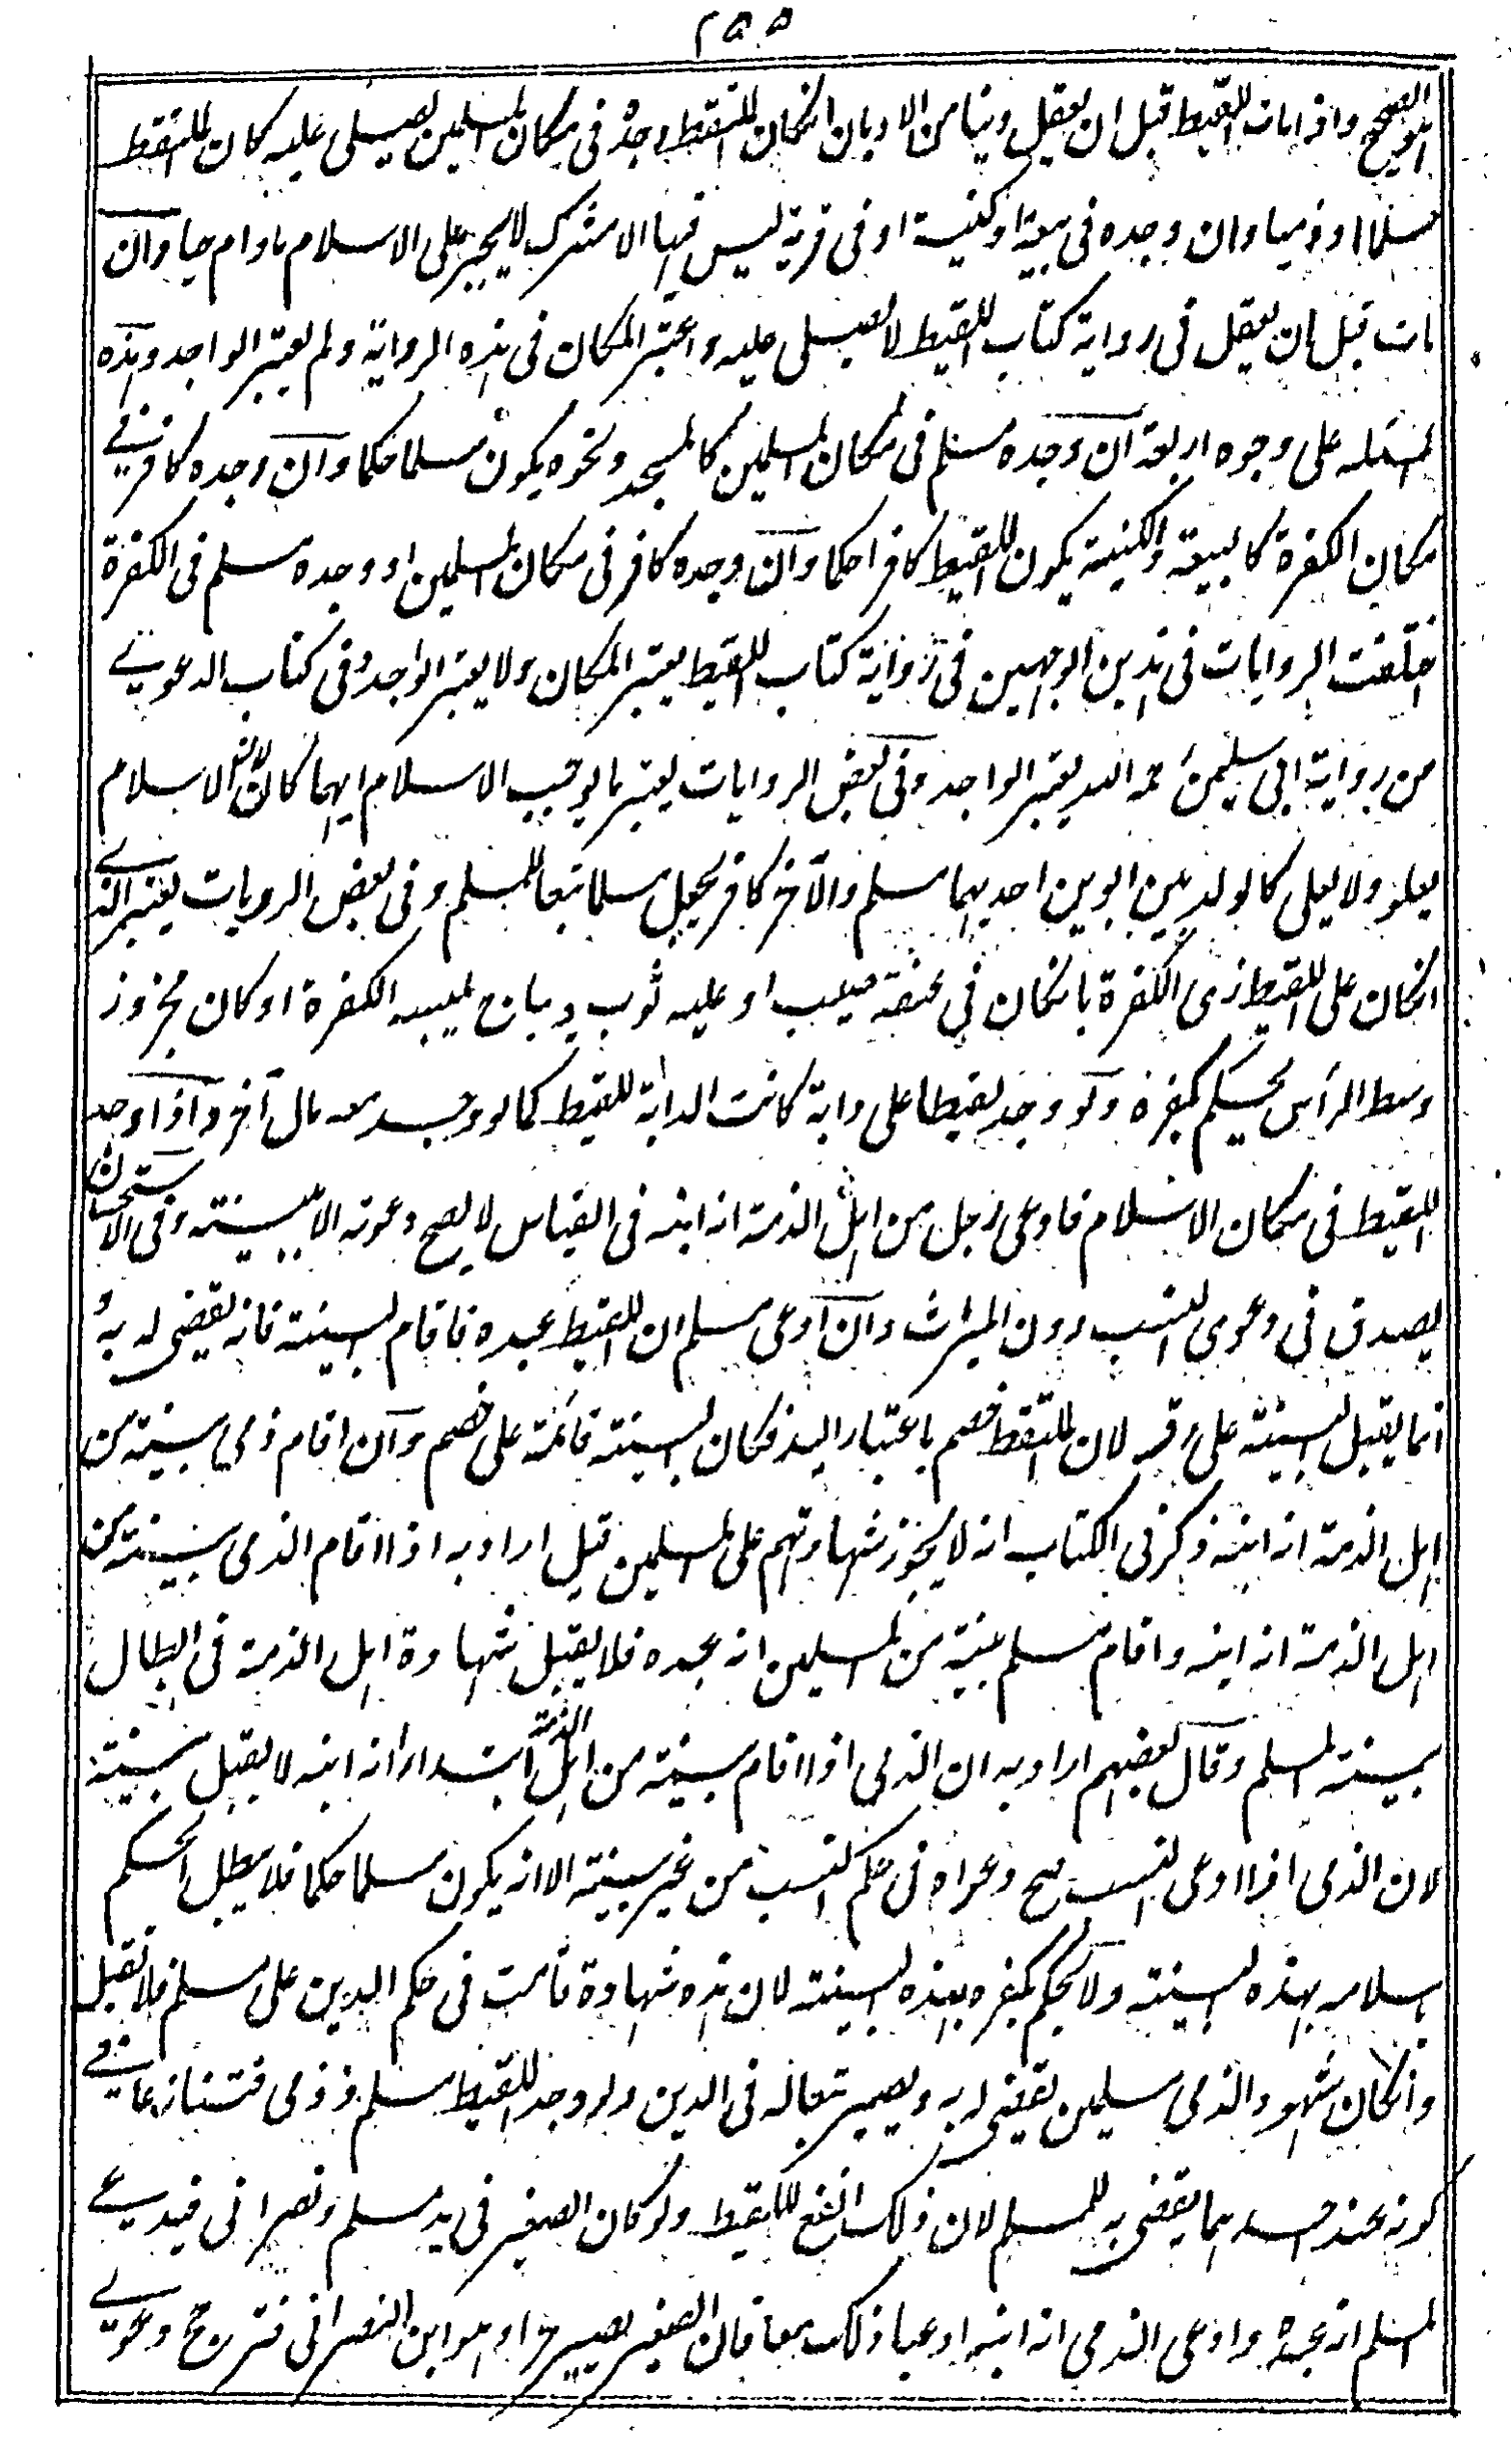 ٢٥٥
هو الصحيح واذا مات اللقيط قبل ان يعقل دينا من الاديان انكان الملتقط وجده فى مكان المسلمين يصلى عليه كان الملتقط
مسلما او ذميا وان وجده فى بيعة او كنيسة او فى قرية ليس فيها الا مشرك لا يجبر على الاسلام مادام حيا وان
مات قبل ان يعقل فى رواية كتاب اللقيط لا يصلى عليه واعتبر المكان فى هذه الرواية ولم يعتبر الواجد وهذه
المسئله على وجوه اربعة ان وجده مسلم فى مكان المسلمين كالمسجد ونحوه يكون مسلما حكما وان وجده كافر فى
مكان الكفرة كالبيعة والكنيسة يكون اللقيط كافرا حكما وان وجده كافر فى مكان المسلمين او وجده مسلم فى الكفرة
اختلفت الروايات فى هذين الوجهين فى رواية كتاب اللقيط يعتبر المكان ولا يعتبر الواجد وفى كتاب الدعوى
من رواية ابى سليمن رحمه الله يعتبر الواجد وفى بعض الروايات يعتبر ما يوجب الاسلام ايهما كان لان الاسلام
يعلو ولا يعلى كالولد بين ابوين احدهما مسلم والآخر كافر يجعل مسلما تبعا للمسلم وفى بعض الرويات يعتبر الزى
انكان على اللقيط زى الكفرة بانكان فى عنقه صليب او عليه ثوب ديباج يلبسه الكفرة او كان مجزوز
وسط الرأس يحكم بكفره ولو وجد لقيطا على دابة كانت الدابة للقيط كما لو وجد معه مال آخر واذا وجد
اللقيط فى مكان الاسلام فادعى رجل من اهل الذمة انه ابنه فى القياس لا يصح دعوته الا ببينته وفى الاستحسان
يصدق فى دعوى النسب دون الميراث وان ادعى مسلم ان اللقيط عبده فاقام البينة فانه يقضى له به و
انما يقبل البينة على رقه لان الملتقط خصم باعتبار اليد فكان البينة قائمة على خصم وان اقام ذمى بينة من
اهل الذمة انه ابنه ذكر فى الكتاب انه لا يجوز شهادتهم على المسلمين قيل اراد به اذا اقام الذمى بينة من
اهل الذمة انه ابنه واقام مسلم بينة من المسلمين انه عبده فلا يقبل شهادة اهل الذمة فى ابطال
بينة المسلم وقال بعضهم اراد به ان الذمى اذا اقام بينة من اهل الذمة ابتداء انه ابنه لا يقبل بينته
لان الذمى اذا ادعى النسب صح دعواه فى حكم النسب من غير بينة الا انه يكون مسلما حكما فلا يبطل الحكم
باسلامه بهذه البينة ولا يحكم بكفره بهذه البينة لان هذه شهادة قامت فى حكم الدين على مسلم فلا تقبل
وانكان شهود الذمى مسلمين يقضى له به ويصير تبعا له فى الدين ولو وجد اللقيط مسلم وذمى فتنازعا فى
كونه عند احدهما يقضى به للمسلم لان ذلك انفع للقيط ولو كان الصغير فى يد مسلم ونصرانى فيدعى
المسلم انه عبده وادعى الذمى انه ابنه ادعيا ذلك معا فان الصغير يصير حرا وهو ابن النصرانى فترجح دعوى